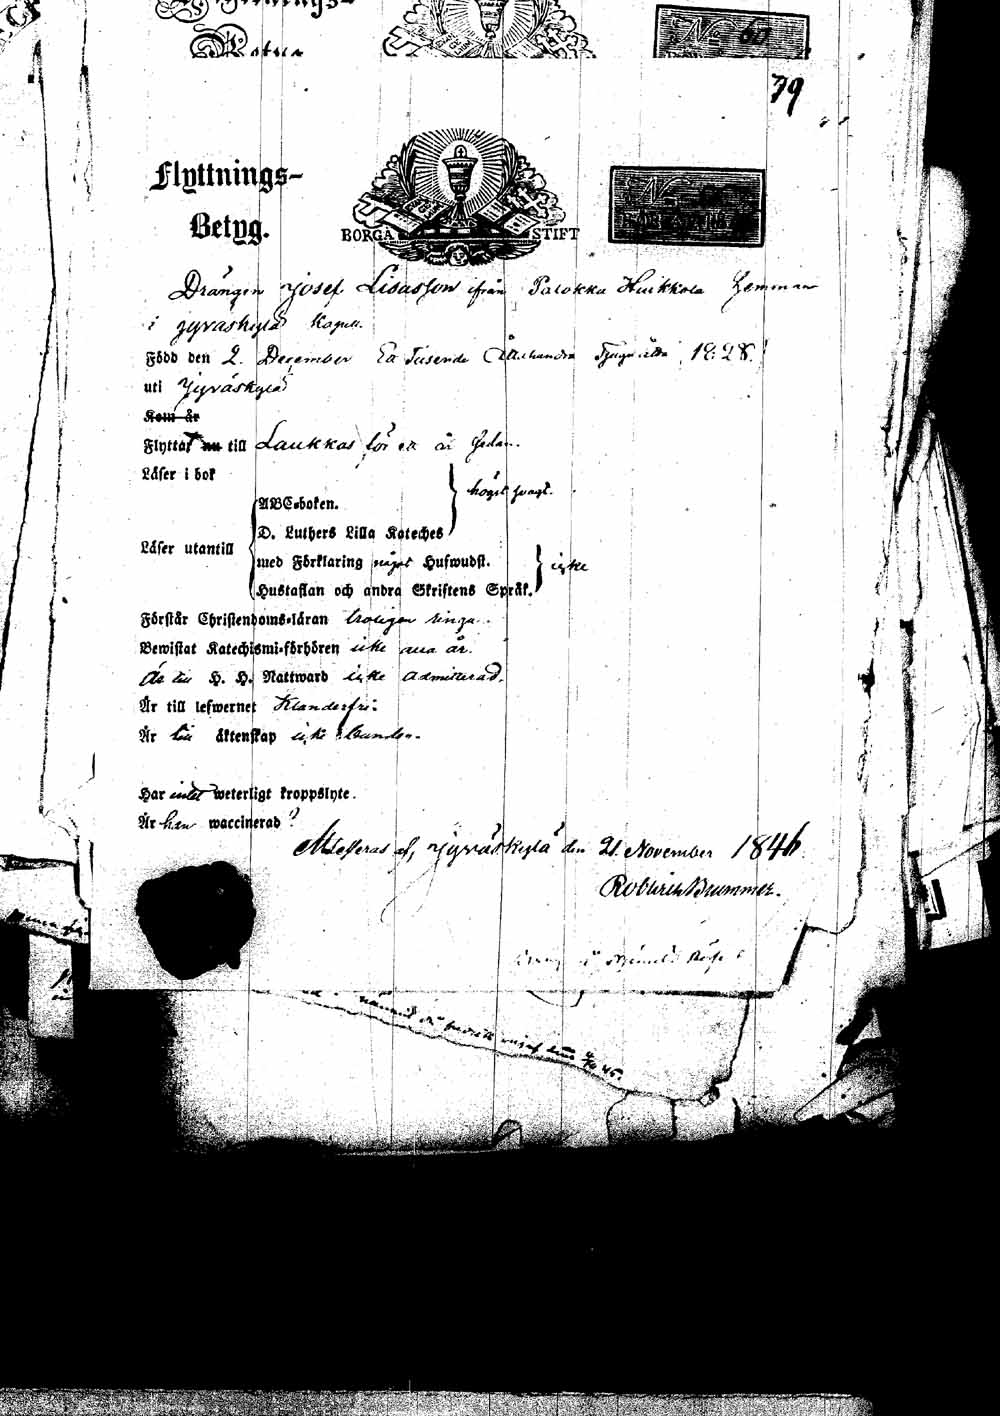 No 60
79
Flyttnings-
Betyg.
BORGÅ STIFT
No
Drängen Josef Lisasson ifrån Palokka Huikkola Hemman
i Jyväskylä Kapell.
Född den 2. December Ett Tusende Åttahundra Tjuguåtta 1828.
uti Jyväskylä
Kom år
Flyttat nu till Laukkas för ett år sedan.
Läser i bok
högst svagt.
ABC-boken.
D. Luthers Lilla Kateches
Läser utantill
med Förklaring något Hufwudst.
icke
Hustaflan och andra Skriftens Språk.
Förstår Christendoms-läran troligen ringa.
Bewistat Katechismi-förhören icke alla år.
Är till H. H. Nattward icke admitterad.
Är till lefwernet Klanderfri.
Är till äktenskap icke bunden.
Har intet weterligt kroppslyte.
Är han waccinerad?
Attesteras af, Jyväskylä den 21. November 1846.
Brummer.